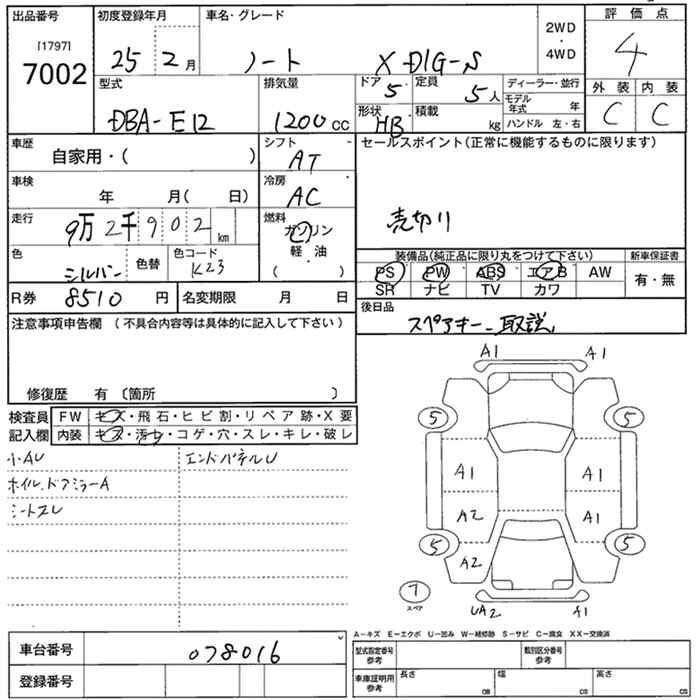 出品番号
[1797]
7002
初度登録年月
25 2月
車名・グレード
ノート X DIG-S
2WD
・
4WD
評価点
4
外装 内装
C C
型式
DBA-E12
排気量
1200cc
ドア 5
定員 5人
形状 HB
積載 kg
ディーラー・並行
モデル年式 年
ハンドル 左・右
車歴
自家用・( )
シフト
AT
セールスポイント(正常に機能するものに限ります)
売切り
車検
年 月( 日)
冷房
AC
走行
9万2千902km
燃料
ガソリン
軽・油
( )
色
シルバー
色替
色コード
K23
装備品(純正品に限り丸をつけて下さい)
PS PW ABS エアB AW
SR ナビ TV カワ
新車保証書
有・無
R券 8510円
名変期限 月 日
後日品
スペアキー、取説
注意事項申告欄 (不具合内容等は具体的に記入して下さい)
修復歴 有 〔箇所 〕
検査員記入欄
FW キズ・飛石・ヒビ割・リペア跡・X要
内装 キズ・汚れ・コゲ・穴・スレ・キレ・破レ
小AU エンドパネルU
ホイル、ドアミラーA
シートスレ
A1 A1
5 5
A1 A1
A2 A1
5 5
A2
7
スペア
UA2 A1
A-キズ E-エクボ U-凹み W-補修跡 S-サビ C-腐食 XX-交換済
車台番号 078016
登録番号
型式指定番号
参考
類別区分番号
参考
車庫証明用
参考
長さ cm
幅 cm
高さ cm